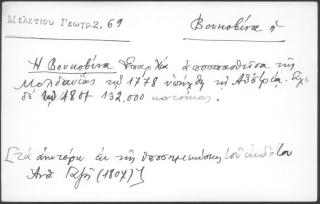 Μελετίου Γεωγρ. 2, 69
Βουκοβίνα ἡ
Ἡ Βουκοβίνα ἐπαρχία ἀποσπασθεῖσα τῆς
Μολδαυΐας τῷ 1778 ὑπήχθη τῇ Αὐστρίᾳ. Εἶχε
δὲ τῷ 1801 132.000 κατοίκους.
[τὰ ἀνωτέρω ἐκ τῆς ὑποσημειώσεως τοῦ ἐκδότου
Ἀνθ Γαζῆ (1807)]